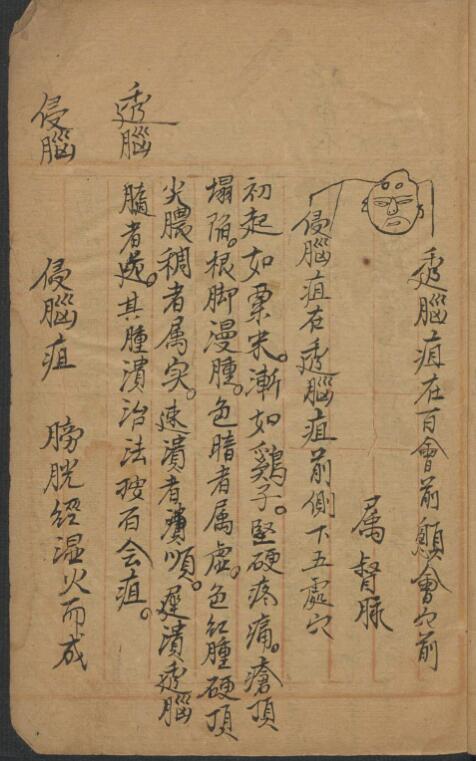 透腦疽在百會前顖會穴前
属督脉
侵腦疽在透腦疽前側下五處穴
初起如粟米。漸如鷄子。堅硬疼痛。瘡頂
塌陷。根脚漫腫。色暗者属虚。色红腫硬頂
尖膿稠者属实。速潰者順。遲潰透腦
髓者逆。其腫潰治法按百会疽。
透腦
侵腦疽 膀胱經湿火而成
侵腦